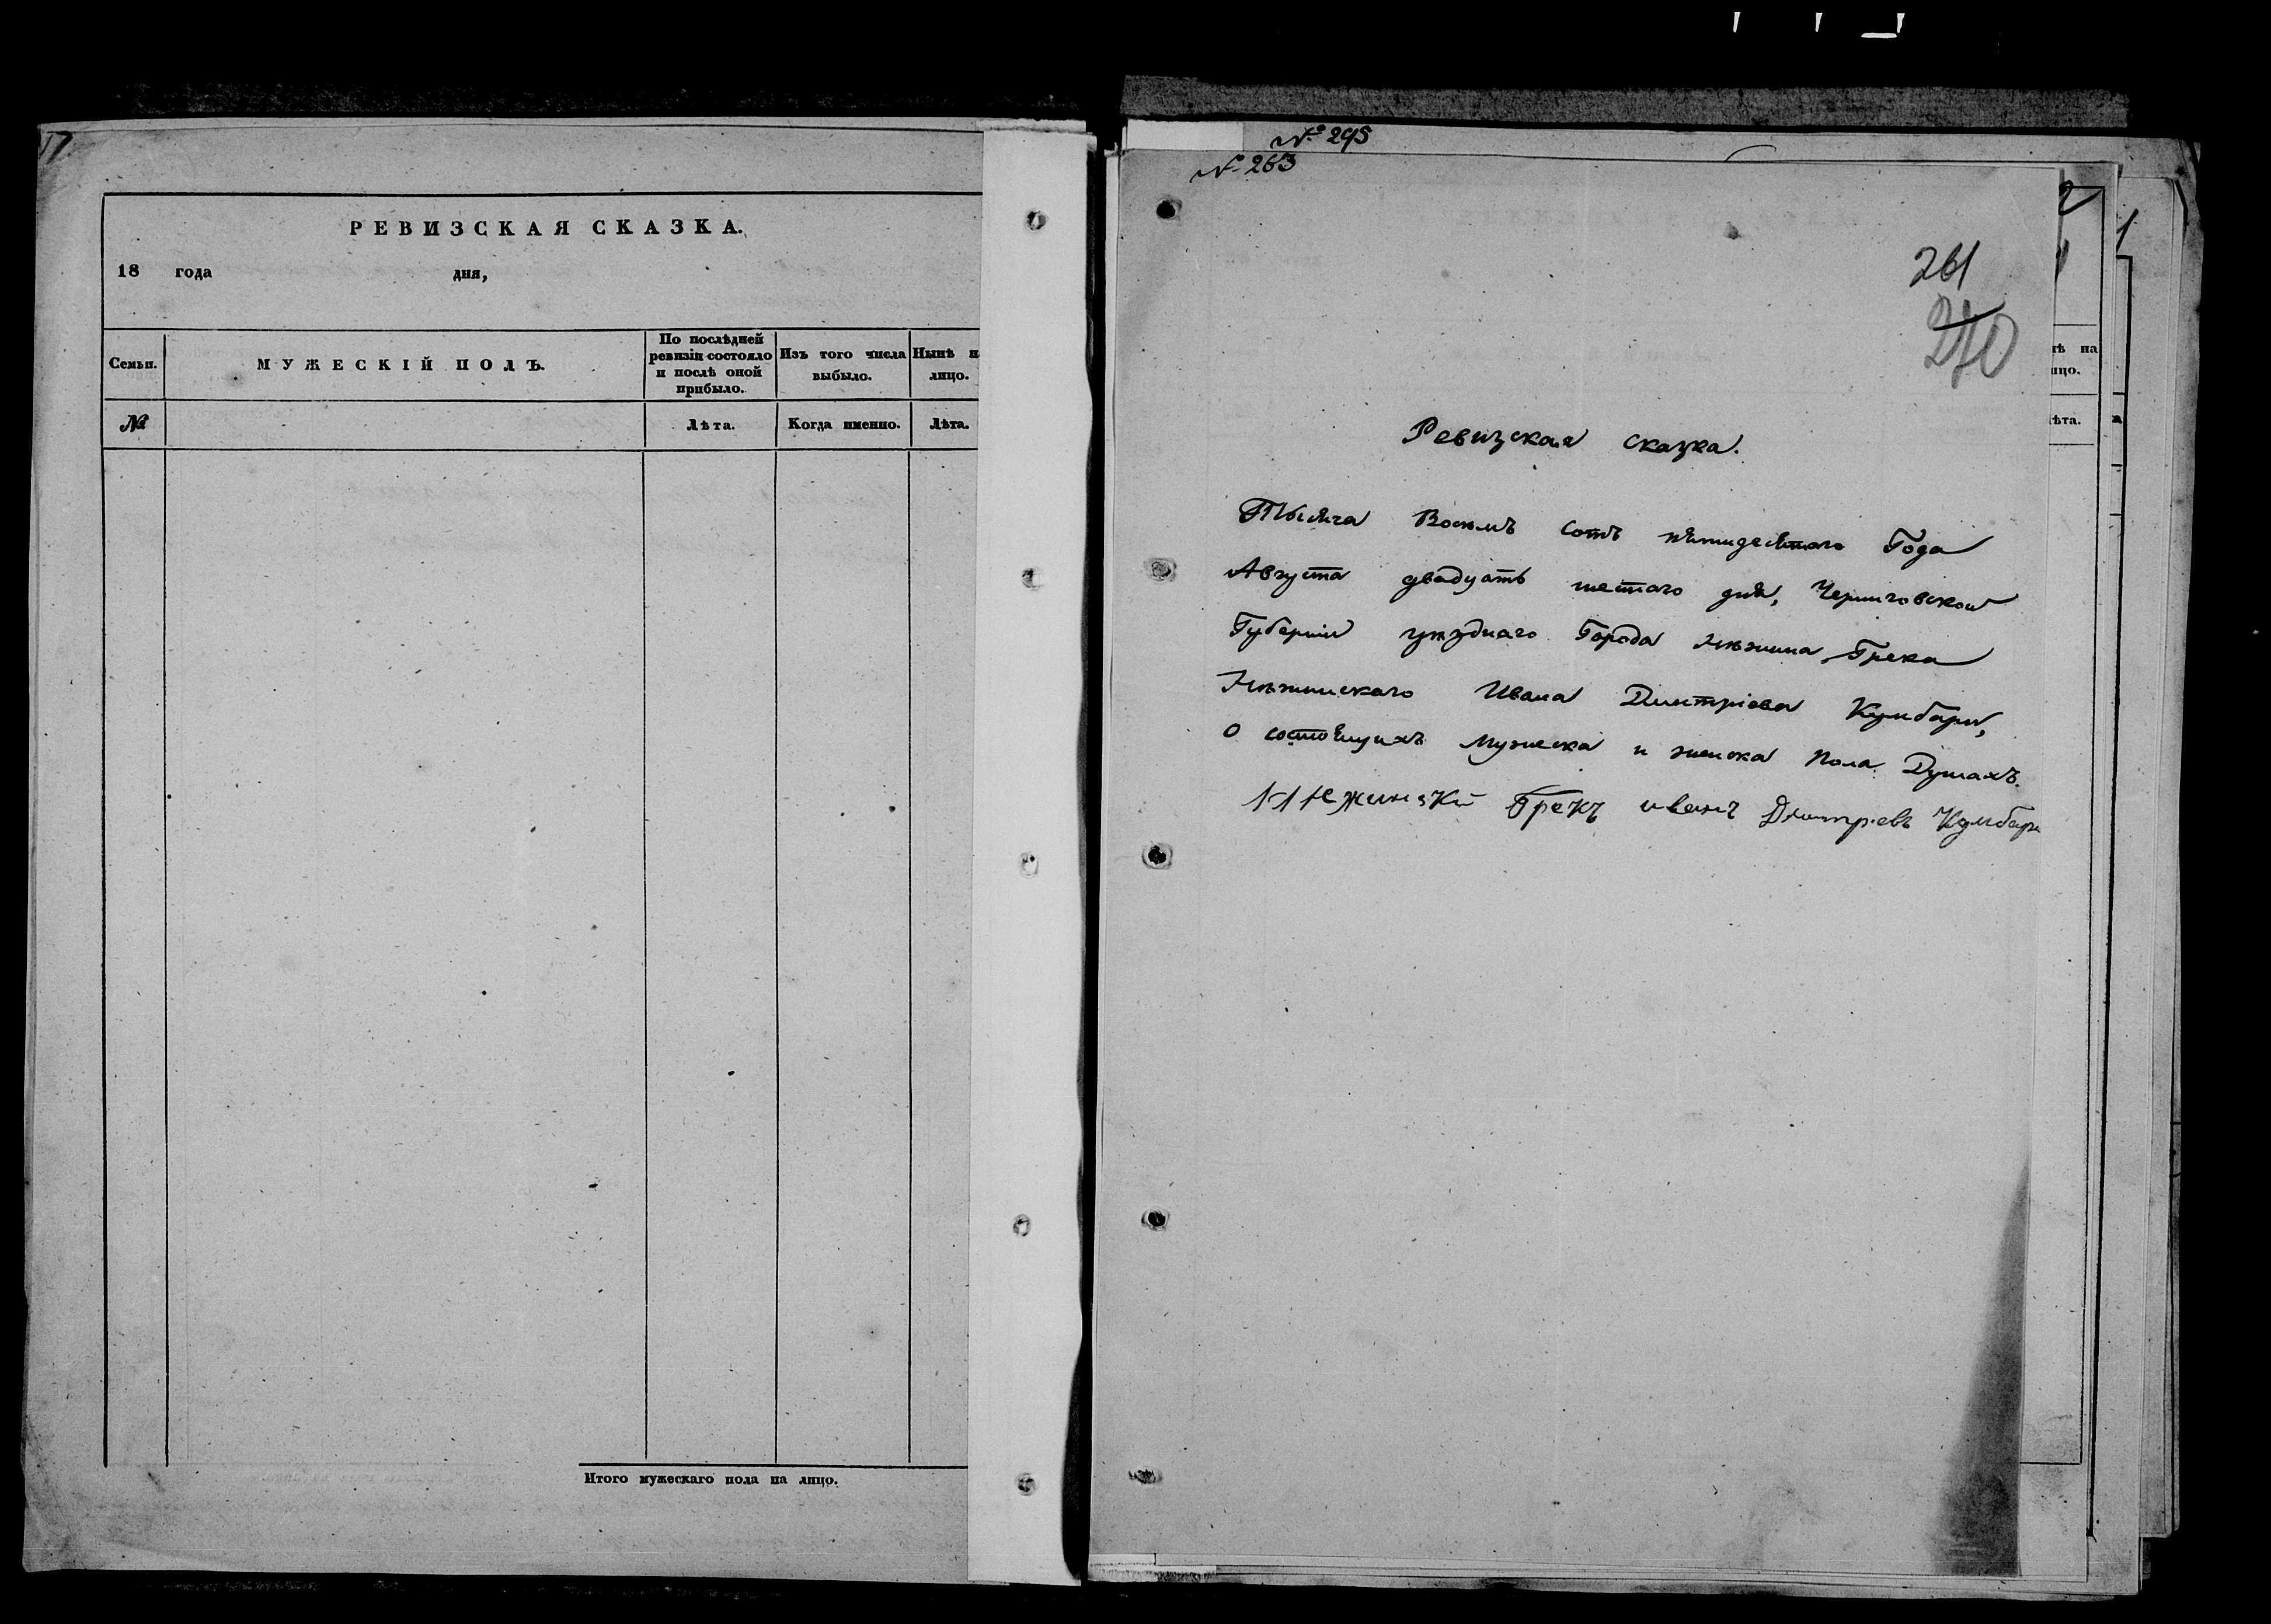 РЕВИЗСКАЯ СКАЗКА.
18 года дня,
Семьи.
МУЖЕСКІЙ ПОЛЪ.
По послѣдней ревизіи состояло и послѣ оной прибыло.
Изъ того числа выбыло.
Нынѣ н
лицо.
№
Лѣта.
Когда именно.
Лѣта.
Итого мужескаго пола на лицо.
№ 295
№ 263
261
270
Ревизская сказка.
Тысяча Восемъ сотъ пятидесятаго Года
Августа двадцать шестаго дня, Черниговской
Губерніи уѣзднаго Города Нѣжина Грека
Нѣжинскаго Ивана Дмитріева Кумбари,
О состоящихъ Мужеска и женска пола Душахъ.
Нежинский Грекъ иванъ Дмитриевъ Кумбари
нѣ на
ицо.
ѣта.